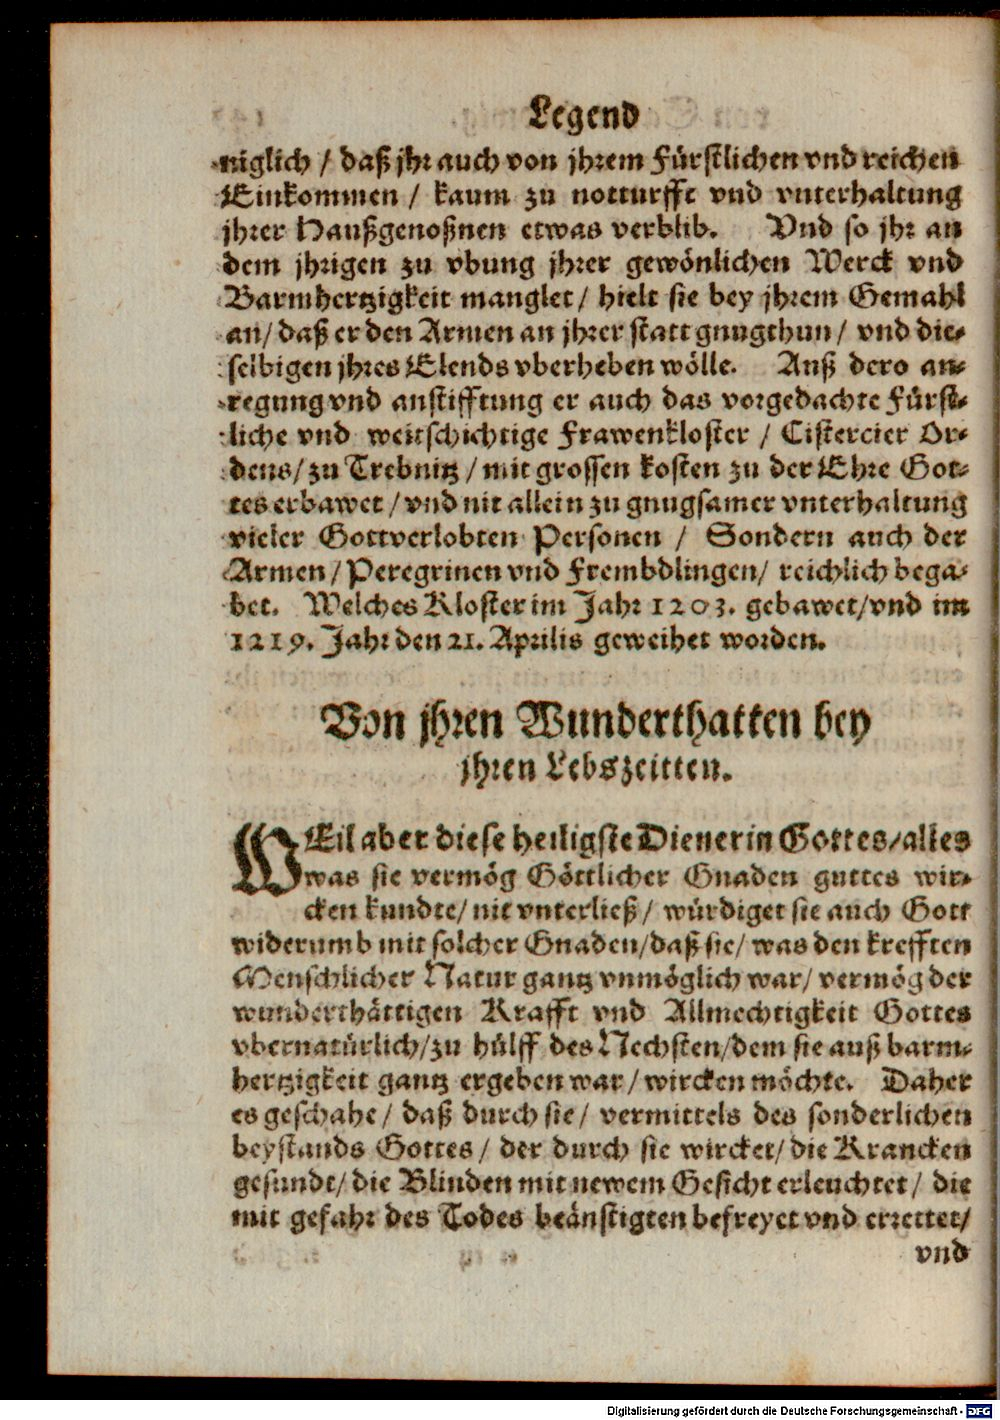 Legend
niglich / daß jhr auch von jhrem Fürstlichen vnd reichen
Einkommen / kaum zu notturfft vnd vnterhaltung
jhrer Haußgenoßnen etwas verblib. Vnd so jhr an
dem jhrigen zu vbung jhrer gewönlichen Werck vnd
Barmhertzigkeit manglet / hielt sie bey jhrem Gemahl
an / daß er den Armen an jhrer statt gnugthun / vnd die-
selbigen jhres Elends vberheben wölle. Auß dero an-
regung vnd anstifftung er auch das vorgedachte Fürst-
liche vnd weitschichtige Frawenkloster / Cistercier Or-
dens / zu Trebnitz / mit grossen kosten zu der Ehre Got-
tes erbawet / vnd nit allein zu gnugsamer vnterhaltung
vieler Gottverlobten Personen / Sondern auch der
Armen / Peregrinen vnd Frembdlingen / reichlich bega-
bet. Welches Kloster im Jahr 1203. gebawet / vnd im
1219. Jahr den 21. Aprilis geweihet worden.
Von jhren Wunderthatten bey
jhren Lebszeitten.
WEil aber diese heiligste Dienerin Gottes / alles
was sie vermög Göttlicher Gnaden guttes wir-
cken kundte / nit vnterließ / würdiget sie auch Gott
widerumb mit solcher Gnaden / daß sie / was den krefften
Menschlicher Natur gantz vnmöglich war / vermög der
wunderthättigen Krafft vnd Allmechtigkeit Gottes
vbernatürlich / zu hülff des Nechsten / dem sie auß barm-
hertzigkeit gantz ergeben war / wircken möchte. Daher
es geschahe / daß durch sie / vermittels des sonderlichen
beystands Gottes / der durch sie wircket / die Krancken
gesundt / die Blinden mit newem Gesicht erleuchtet / die
mit gefahr des Todes beänstigten befreyet vnd errettet /
vnd
Digitalisierung gefördert durch die Deutsche Forschungsgemeinschaft - DFG